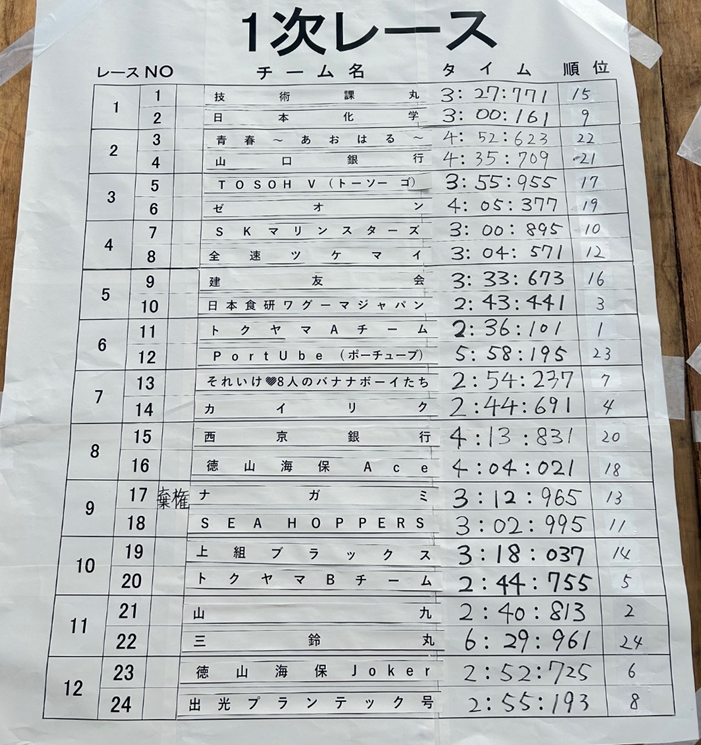 1次レース
レース NO チーム名 タイム 順位
1 1 技術課丸 3:27:771 15
2 日本化学 3:00:161 9
2 3 青春～あおはる～ 4:52:623 22
4 山口銀行 4:35:709 21
3 5 TOSOH V（トーソーゴ） 3:55:955 17
6 ゼオン 4:05:377 19
4 7 SKマリンスターズ 3:00:895 10
8 全速ツケマイ 3:04:571 12
5 9 建友会 3:33:673 16
10 日本食研ワグーマジャパン 2:43:441 3
6 11 トクヤマAチーム 2:36:101 1
12 PortUbe（ポーチューブ） 5:58:195 23
7 13 それいけ♥8人のバナナボーイたち 2:54:237 7
14 カイリク 2:44:691 4
8 15 西京銀行 4:13:831 20
16 徳山海保Ace 4:04:021 18
9 17 棄権 ナガミ 3:12:965 13
18 SEA HOPPERS 3:02:995 11
10 19 上組ブラックス 3:18:037 14
20 トクヤマBチーム 2:44:755 5
11 21 山九 2:40:813 2
22 三鈴丸 6:29:961 24
12 23 徳山海保Joker 2:52:725 6
24 出光プランテック号 2:55:193 8